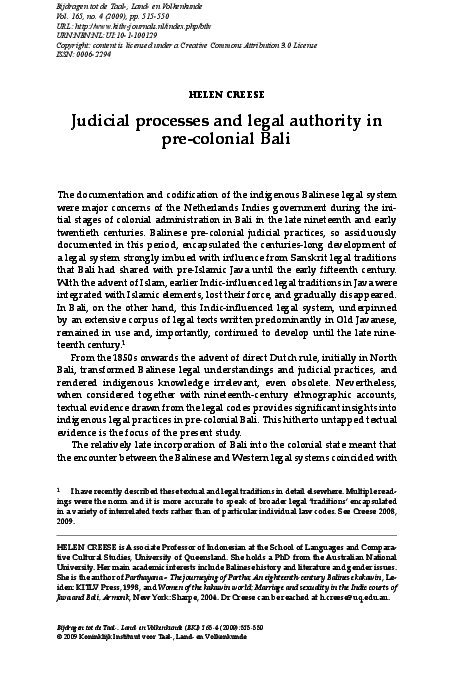 Bijdragen tot de Taal-, Land- en Volkenkunde
Vol. 165, no. 4 (2009), pp. 515-550
URL: http://www.kitlv-journals.nl/index.php/btlv
URN:NBN:NL: UI: 10-1-100129
Copyright: content is licensed under a Creative Commons Attribution 3.0 License
ISSN: 0006-2294
HELEN CREESE
Judicial processes and legal authority in
pre-colonial Bali
The documentation and codification of the indigenous Balinese legal system
were major concerns of the Netherlands Indies government during the ini-
tial stages of colonial administration in Bali in the late nineteenth and early
twentieth centuries. Balinese pre-colonial judicial practices, so assiduously
documented in this period, encapsulated the centuries-long development of
a legal system strongly imbued with influence from Sanskrit legal traditions
that Bali had shared with pre-Islamic Java until the early fifteenth century.
With the advent of Islam, earlier Indic-influenced legal traditions in Java were
integrated with Islamic elements, lost their force, and gradually disappeared.
In Bali, on the other hand, this Indic-influenced legal system, underpinned
by an extensive corpus of legal texts written predominantly in Old Javanese,
remained in use and, importantly, continued to develop until the late nine-
teenth century.1
From the 1850s onwards the advent of direct Dutch rule, initially in North
Bali, transformed Balinese legal understandings and judicial practices, and
rendered indigenous knowledge irrelevant, even obsolete. Nevertheless,
when considered together with nineteenth-century ethnographic accounts,
textual evidence drawn from the legal codes provides significant insights into
indigenous legal practices in pre-colonial Bali. This hitherto untapped textual
evidence is the focus of the present study.
The relatively late incorporation of Bali into the colonial state meant that
the encounter between the Balinese and Western legal systems coincided with
1 I have recently described these textual and legal traditions in detail elsewhere. Multiple read-
ings were the norm and it is more accurate to speak of broader legal 'traditions' encapsulated
in a variety of interrelated texts rather than of particular individual law codes. See Creese 2008,
2009.
HELEN CREESE is Associate Professor of Indonesian at the School of Languages and Compara-
tive Cultural Studies, University of Queensland. She holds a PhD from the Australian National
University. Her main academic interests include Balinese history and literature and gender issues.
She is the author of Parthayana – The journeying of Partha. An eighteenth-century Balinese kakawin, Lei-
den: KITLV Press, 1998, and Women of the kakawin world: Marriage and sexuality in the Indic courts of
Java and Bali, Armonk, New York: Sharpe, 2004. Dr Creese can be reached at h.creese@uq.edu.au.
Bijdragen tot de Taal-, Land- en Volkenkunde (BKI) 165-4 (2009):515-550
© 2009 Koninklijk Instituut voor Taal-, Land- en Volkenkunde